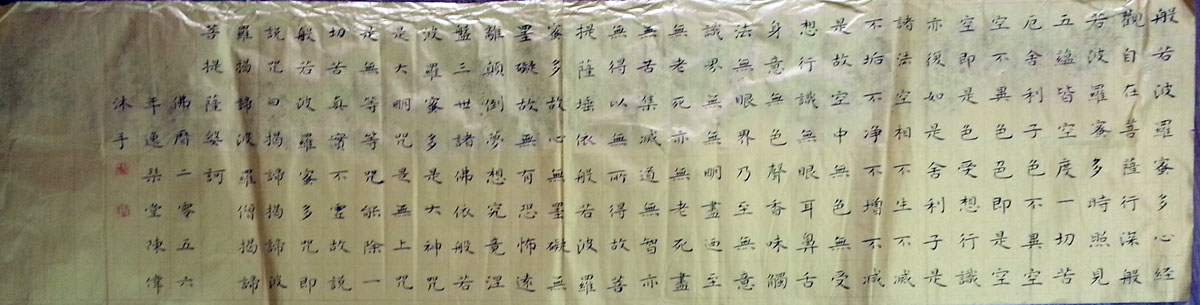 般若波羅蜜多心経
觀自在菩薩行深般
若波羅蜜多時照見
五蘊皆空度一切苦
厄舍利子色不異空
空不異色色即是空
空即是色受想行識
亦復如是舍利子是
諸法空相不生不滅
不垢不净不增不减
是故空中無色無受
想行識無眼耳鼻舌
身意無色聲香味觸
法無眼界乃至無意
識界無無明盡迺至
無老死亦無老死盡
無苦集滅道無智亦
無得以無所得故菩
提薩埵依般若波羅
蜜多故心無罣礙無
罣礙故無有恐怖遠
離顛倒夢想究竟涅
盤三世諸佛依般若
波羅蜜多是大神咒
是大明咒是無上咒
是無等等咒能除一
切苦真實不虛故説
般若波羅蜜多咒即
説咒曰揭諦揭諦波
羅揭諦波羅僧揭諦
菩提薩婆訶
佛曆二零五六
年逸琹堂陳偉
沐手